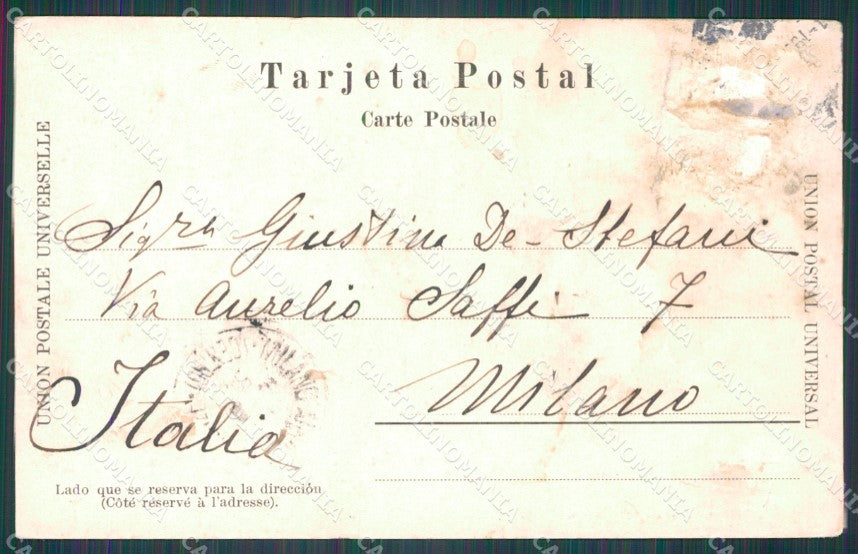 Tarjeta Postal
Carte Postale
UNION POSTALE UNIVERSELLE
UNION POSTAL UNIVERSAL
Sigra Giustina De-Stefani
Via Aurelio Saffi 7
Milano
Italia
Lado que se reserva para la dirección
(Côté réservé à l'adresse).
CARTOLINOMANIA